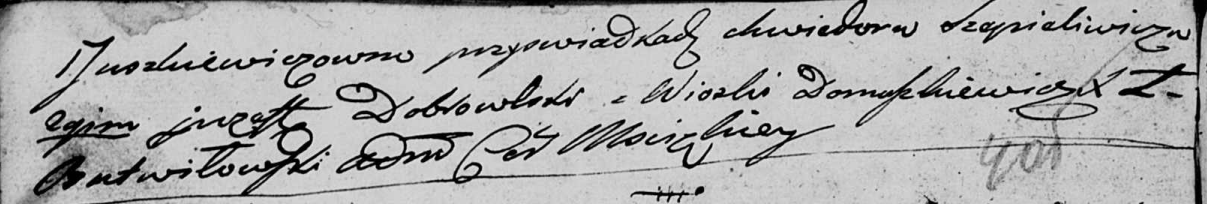 Juszkiewiczowna przy swiadkach chwiedora Szepieliwicza
jozeff Dobrowlski z Wioski Domaszkiewicz X T.
Butwiłowski adm Cer Mscizkiey
408